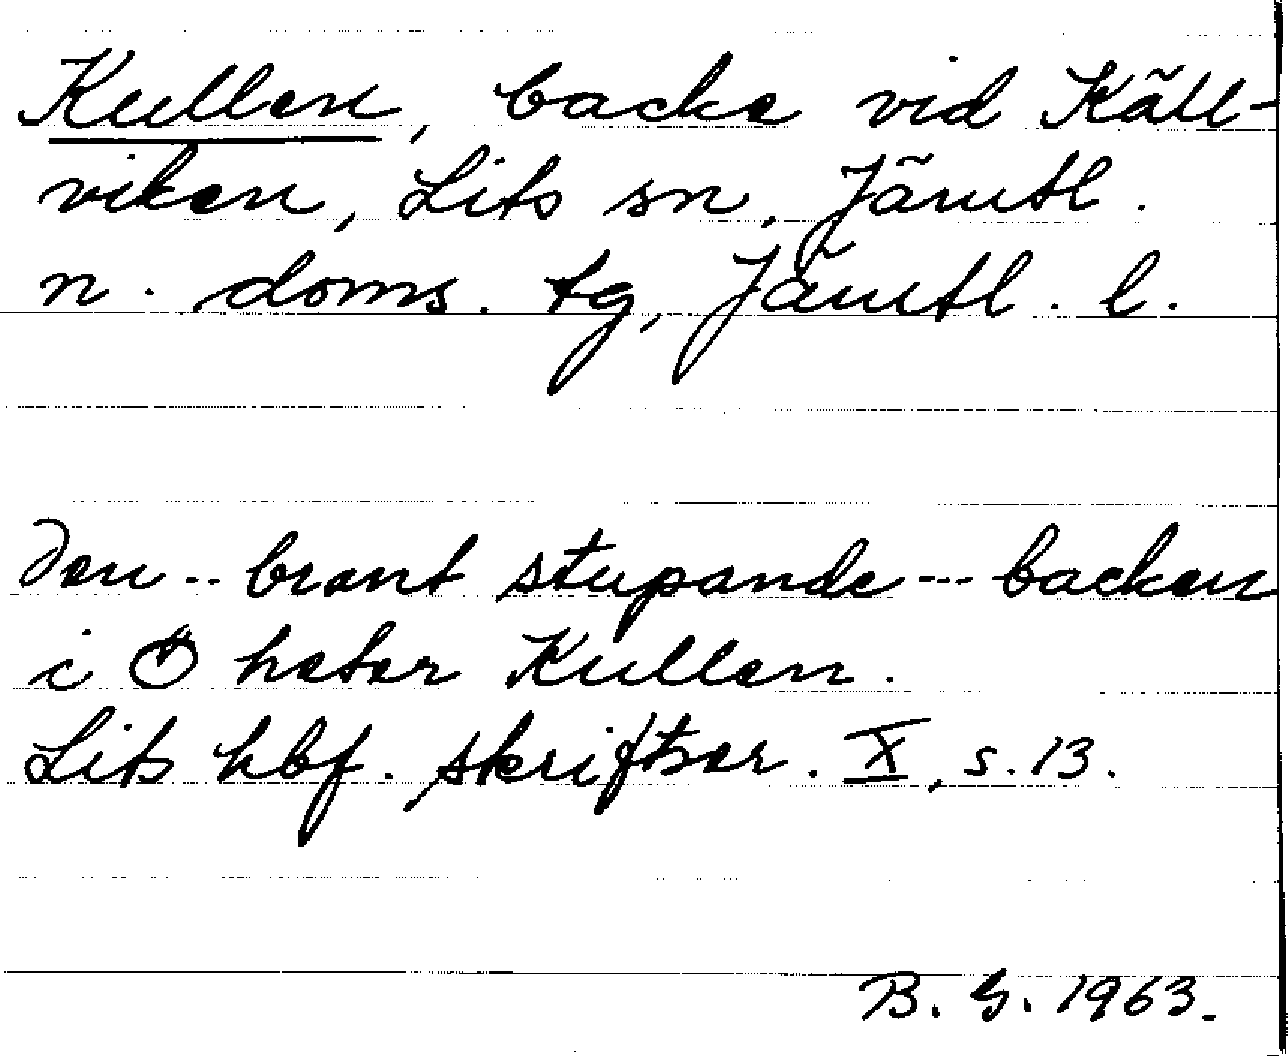 Kullen, backe vid Käll-
viken, Lits sn, Jämtl.
n. doms. tg, Jämtl. l.
Den .. brant stupande --- backen
i Ö heter Kullen.
Lits hbf. skriftser. X, s. 13.
B. G. 1963.